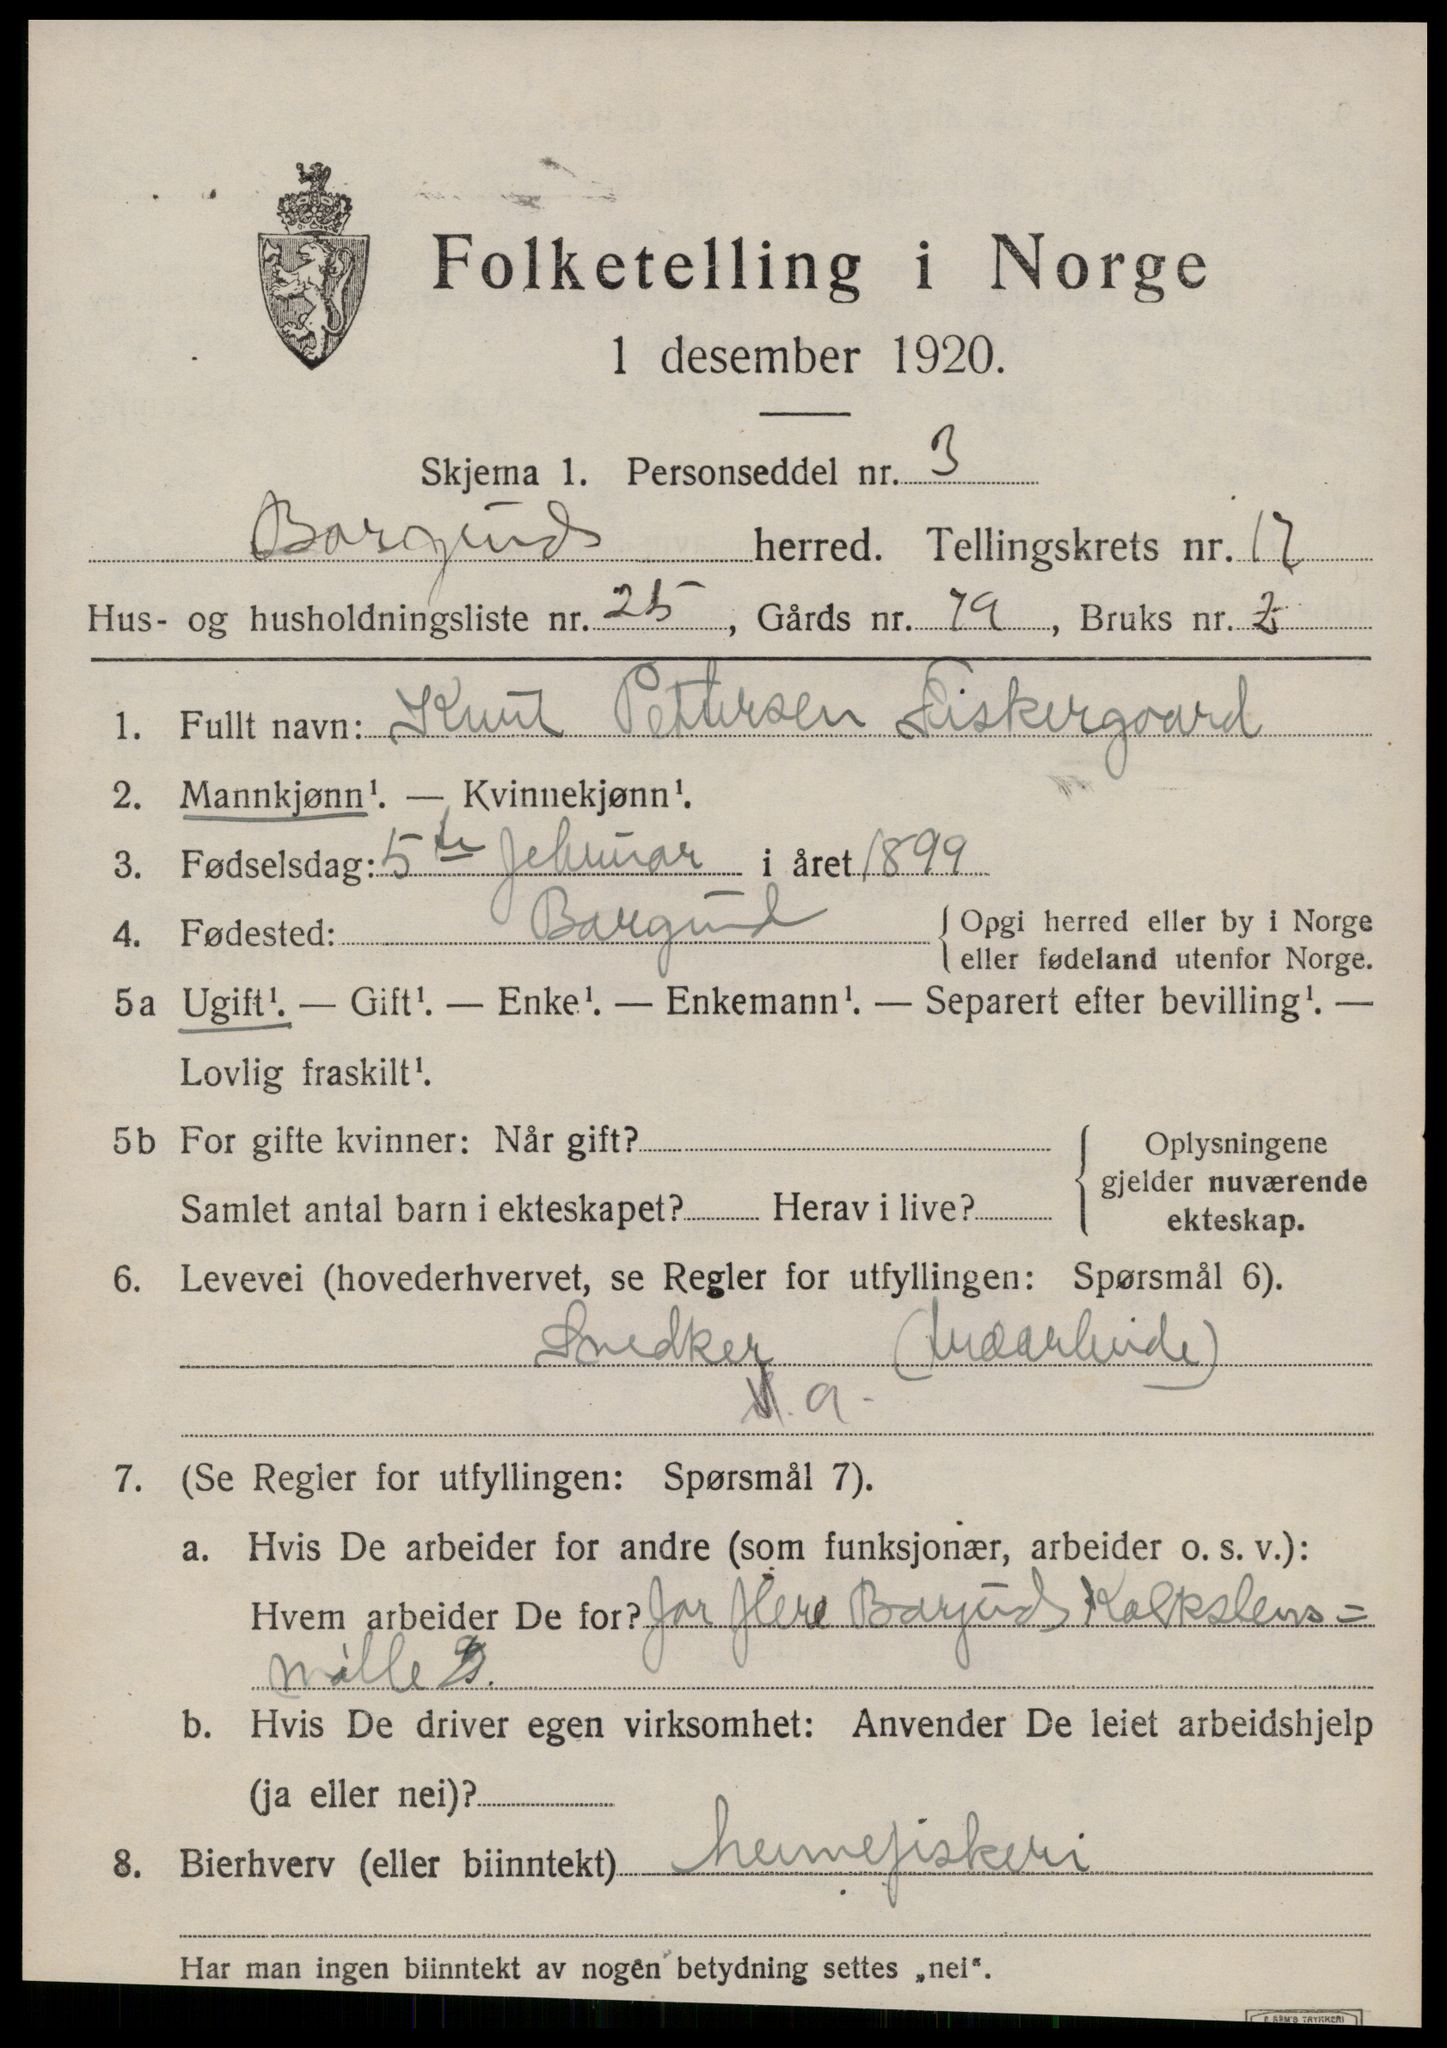 Folketelling i Norge
1 desember 1920.
Skjema 1. Personseddel nr. 3
Borgunds herred. Tellingskrets nr. 17
Hus- og husholdningsliste nr. 25, Gårds nr. 79, Bruks nr. 2
1. Fullt navn: Knut Pettersen Fiskergaard
2. Mannkjønn¹. — Kvinnekjønn¹.
3. Fødselsdag: 5te februar i året 1899
4. Fødested: Borgund { Opgi herred eller by i Norge
eller fødeland utenfor Norge.
5a Ugift¹. — Gift¹. — Enke¹. — Enkemann¹. — Separert efter bevilling¹. —
Lovlig fraskilt¹.
5b For gifte kvinner: Når gift? { Oplysningene
gjelder nuværende
Samlet antal barn i ekteskapet? Herav i live? ekteskap.
6. Levevei (hovederhvervet, se Regler for utfyllingen: Spørsmål 6).
Snedker (træarbeide)
a.
7. (Se Regler for utfyllingen: Spørsmål 7).
a. Hvis De arbeider for andre (som funksjonær, arbeider o. s. v.):
Hvem arbeider De for? for flere Borgunds Kalkstens=
mølle
b. Hvis De driver egen virksomhet: Anvender De leiet arbeidshjelp
(ja eller nei)?
8. Bierhverv (eller biinntekt) heimefiskeri
Har man ingen biinntekt av nogen betydning settes „nei".